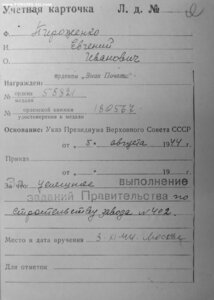 Учетная карточка Л. д. №
Ф. Пироженко
И. Евгений
О. Иванович
орденом "Знак Почета"
Награжден:
№ ордена 58821
медали
№ орденской книжки 180567
удостоверения к медали
Основание: Указ Президиума Верховного Совета СССР
от „5“ августа 1944 г.
Приказ
от „ “ 194 г.
За что успешное выполнение
заданий Правительства по
строительству завода № 402.
Место и дата вручения 3-XI-44. Москва
Для отметок